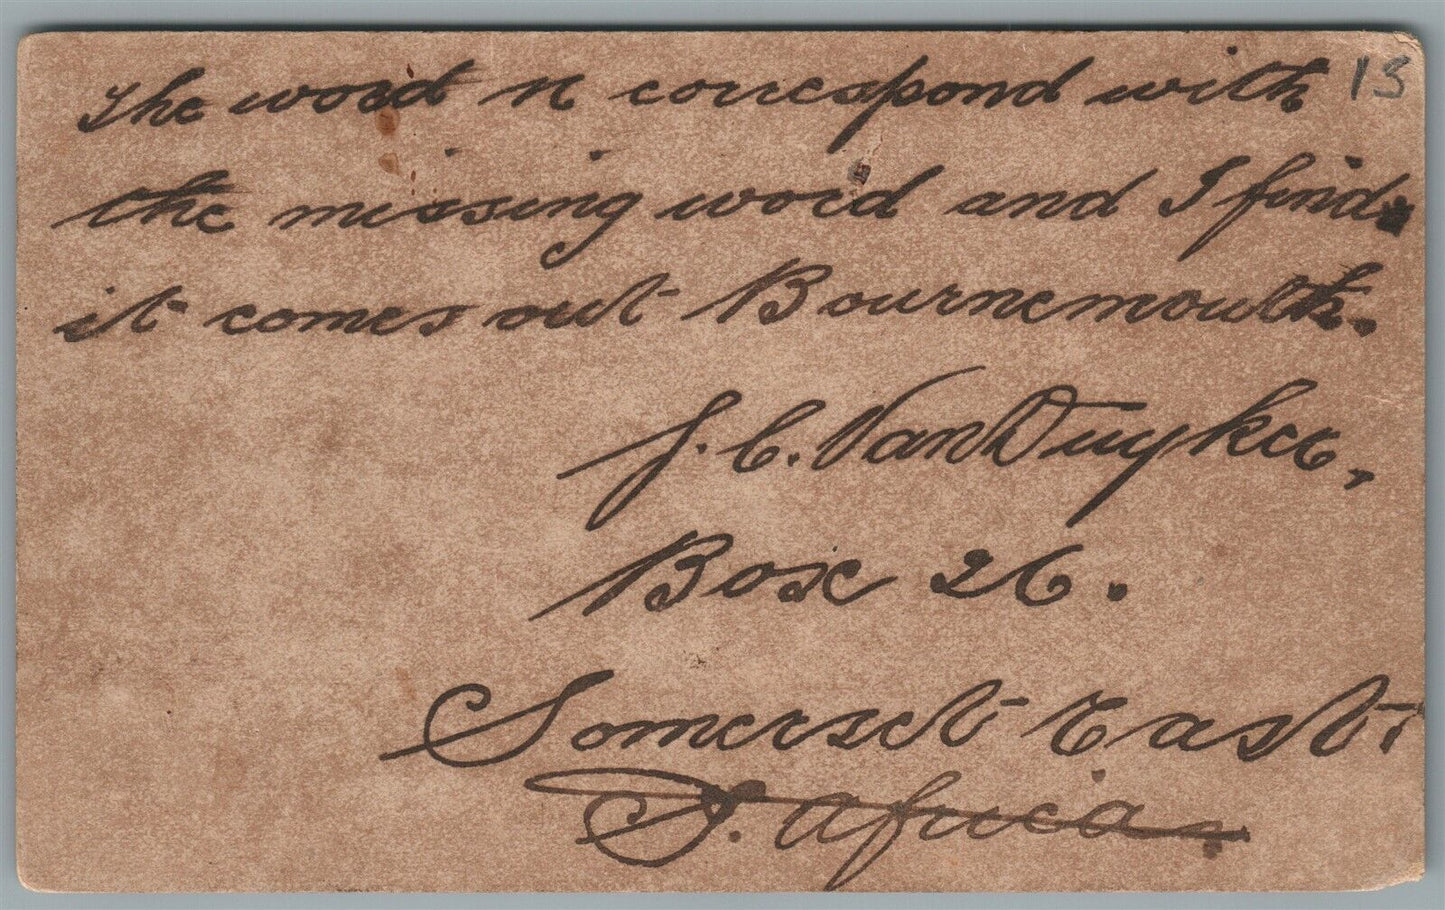 The word n correspond with 13
the missing word and I find
it comes out Bournemouth.
J. C. Van Duyker,
Box 26.
Somerset East.
S. Africa.